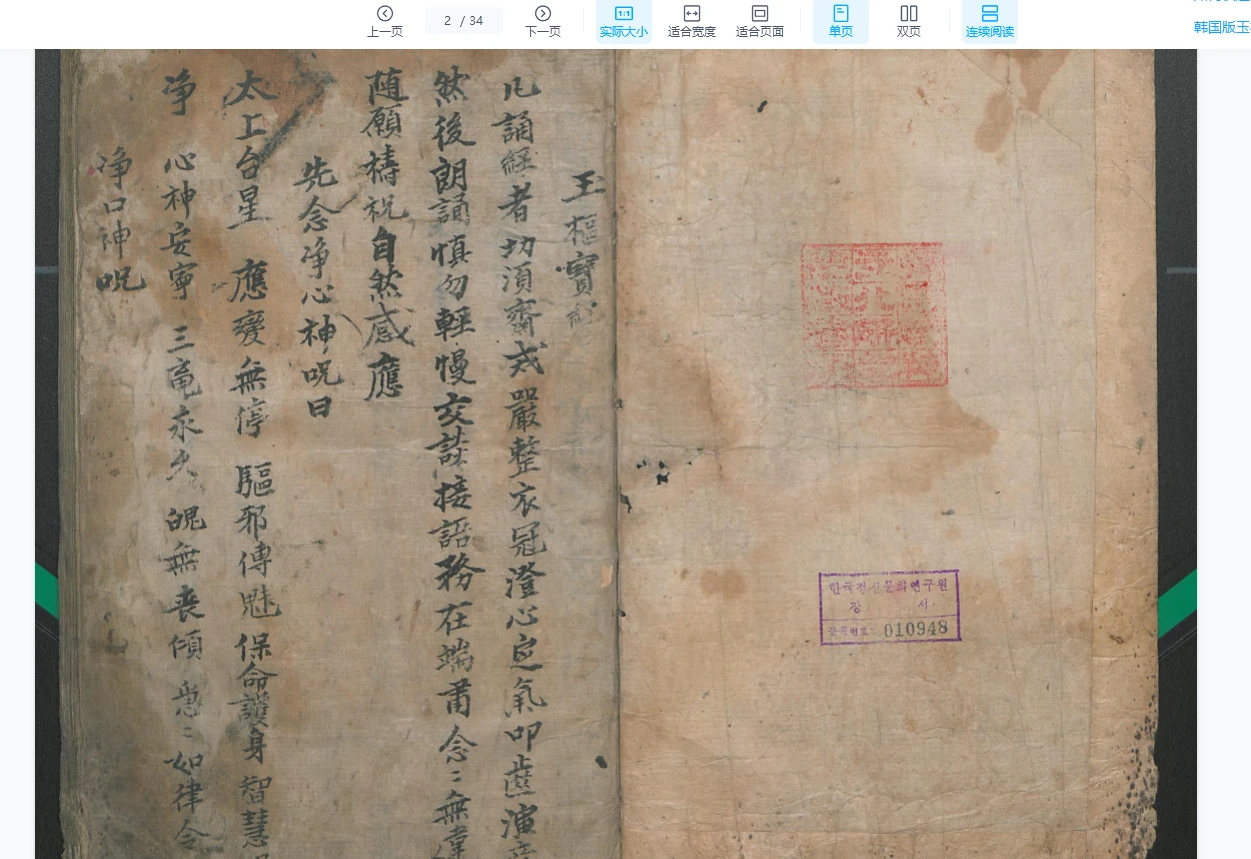 上一页
2 / 34
下一页
实际大小
适合宽度
适合页面
单页
双页
连续阅读
韩国版玉
한국정신문화연구원
장 서
등록번호 010948
玉樞寶經
凡誦經者切須齋戒嚴整衣冠澄心定氣叩齒演音
然後朗誦慎勿輕慢交談接語務在端肅念〻無違
随願禱祝自然感應
先念净心神呪曰
太上台星 應變無停 驅邪傳魅 保命護身 智慧
净 心神安寧 三䰟永久 魄無丧傾 急〻如律令
净口神呪